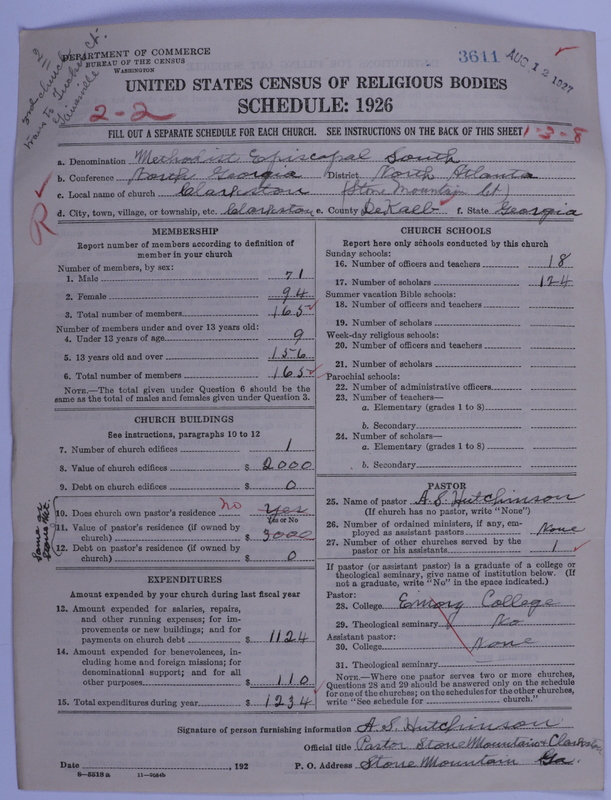 2nd church
DEPARTMENT OF COMMERCE
BUREAU OF THE CENSUS
WASHINGTON
3611 AUG 12 1927
UNITED STATES CENSUS OF RELIGIOUS BODIES
SCHEDULE: 1926
2-2
FILL OUT A SEPARATE SCHEDULE FOR EACH CHURCH. SEE INSTRUCTIONS ON THE BACK OF THIS SHEET
1-3-8
a. Denomination Methodist Episcopal South
b. Conference North Georgia District North Atlanta
c. Local name of church Clarkston (Stone Mountain Ct)
d. City, town, village, or township, etc. Clarkston e. County DeKalb f. State Georgia
R
MEMBERSHIP
Report number of members according to definition of
member in your church
Number of members, by sex:
1. Male 71
2. Female 94
3. Total number of members 165
Number of members under and over 13 years old:
4. Under 13 years of age 9
5. 13 years old and over 156
6. Total number of members 165
NOTE.—The total given under Question 6 should be
the same as the total of males and females given under Question 3.
CHURCH BUILDINGS
See instructions, paragraphs 10 to 12
7. Number of church edifices 1
8. Value of church edifices $ 2000
9. Debt on church edifices $ 0
10. Does church own pastor's residence no Yes
Yes or No
11. Value of pastor's residence (if owned by
church) $ 3000
12. Debt on pastor's residence (if owned by
church) $ 0
Same as
EXPENDITURES
Amount expended by your church during last fiscal year
13. Amount expended for salaries, repairs,
and other running expenses; for im-
provements or new buildings; and for
payments on church debt $ 1124
14. Amount expended for benevolences, in-
cluding home and foreign missions; for
denominational support; and for all
other purposes $ 110
15. Total expenditures during year $ 1234
CHURCH SCHOOLS
Report here only schools conducted by this church
Sunday schools:
16. Number of officers and teachers 18
17. Number of scholars 124
Summer vacation Bible schools:
18. Number of officers and teachers
19. Number of scholars
Week-day religious schools:
20. Number of officers and teachers
21. Number of scholars
Parochial schools:
22. Number of administrative officers
23. Number of teachers—
a. Elementary (grades 1 to 8)
b. Secondary
24. Number of scholars—
a. Elementary (grades 1 to 8)
b. Secondary
PASTOR
25. Name of pastor A. S. Hutchinson
(If church has no pastor, write "None")
26. Number of ordained ministers, if any, em-
ployed as assistant pastors None
27. Number of other churches served by the
pastor or his assistants 1
If pastor (or assistant pastor) is a graduate of a college or
theological seminary, give name of institution below. (If
not a graduate, write "No" in the space indicated.)
Pastor:
28. College Emory College
29. Theological seminary No
Assistant pastor:
30. College None
31. Theological seminary
NOTE.—Where one pastor serves two or more churches,
Questions 28 and 29 should be answered only on the schedule
for one of the churches; on the schedules for the other churches,
write "See schedule for church."
Signature of person furnishing information A. S. Hutchinson
Official title Pastor Stone Mountain & Clarkston
Date , 192 P. O. Address Stone Mountain Ga.
8-5513a 11-9184b